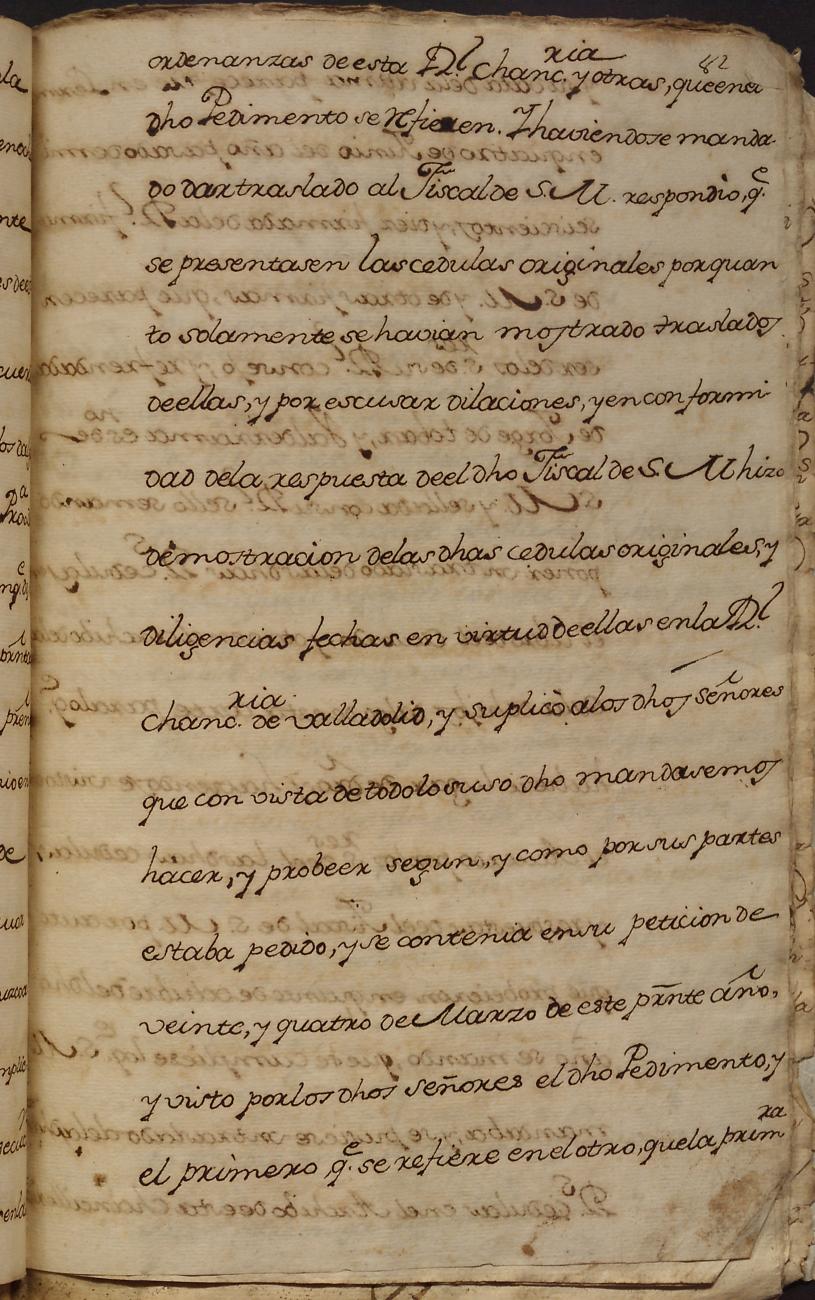 82
ordenanzas de esta Rl. Chanc.ria y otras, que en el
dho Pedimento se refieren. Y haviendose manda-
do dar traslado al Fiscal de S. M. respondio, q.e
se presentasen las cedulas originales por quan
to solamente se havian mostrado traslados
de ellas, y por escusar dilaciones, y en conformi-
dad de la respuesta de el dho Fiscal de S. M hizo
demostracion de las dhas cedulas originales, y
diligencias fechas en virtud de ellas en la Rl.
Chanc.ria de Valladolid, y suplicò a los dhos señores
que con vista de todo lo suso dho mandasemos
hacer, y probeer segun, y como por sus partes
estaba pedido, y se contenia en su peticion de
veinte, y quatro de Marzo de este prñte año,
y visto por los dhos señores el dho Pedimento, y
el primero q.e se refiere en el otro, que la prim.ra